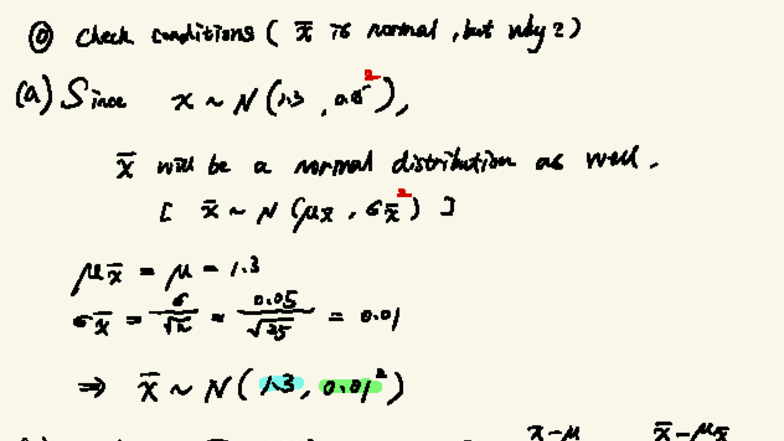 ⓪ Check conditions ( x̄ is normal , but why ? )
(a) Since x ~ N ( 1.3 , 0.05² ) ,
x̄ will be a normal distribution as well .
[ x̄ ~ N ( μx̄ , σx̄² ) ]
μx̄ = μ = 1.3
σx̄ = σ/√n = 0.05/√25 = 0.01
⇒ x̄ ~ N ( 1.3 , 0.01² )
x-μ x̄-μx̄